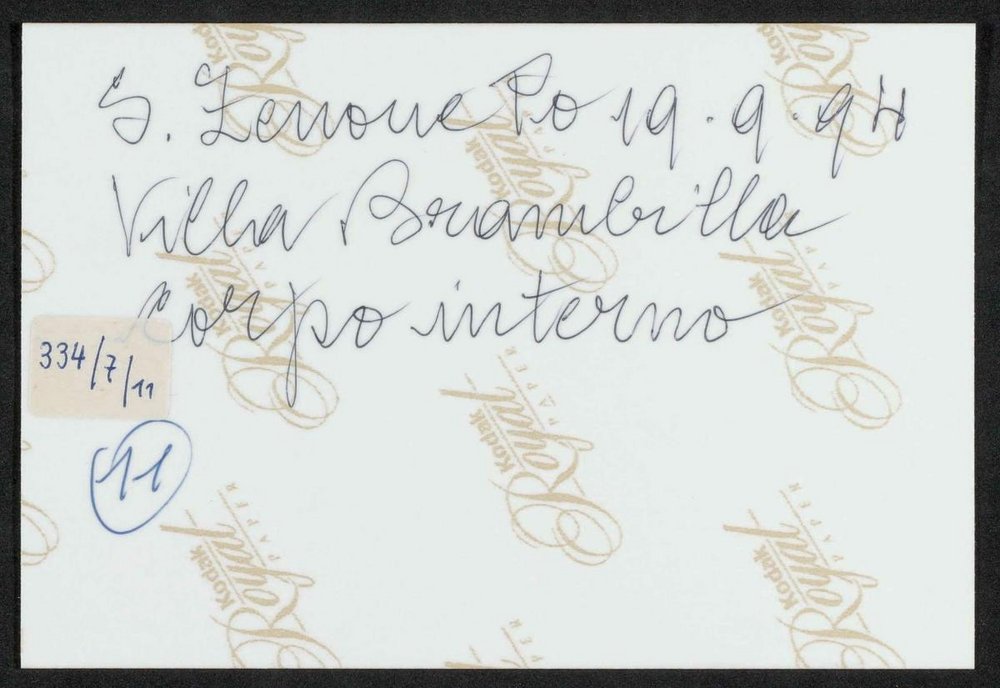 S. Zenone Po 19.9.94
Villa Brambilla
corpo interno
334/7/11
11
Kodak Royal PAPER